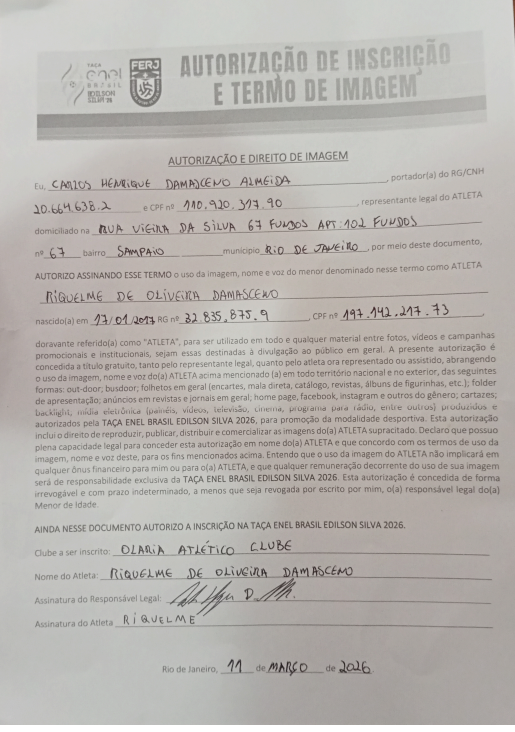 TAÇA
enel
BRASIL
EDILSON
SILVA
FERJ
AUTORIZAÇÃO DE INSCRIÇÃO
E TERMO DE IMAGEM
AUTORIZAÇÃO E DIREITO DE IMAGEM
Eu, CARLOS HENRIQUE DAMASCENO ALMEIDA, portador(a) do RG/CNH
20.664.638.2 e CPF nº 110.920.317.90, representante legal do ATLETA
domiciliado na RUA VIEIRA DA SILVA 67 FUNDOS APT: 102 FUNDOS
nº 67 bairro SAMPAIO município RIO DE JANEIRO, por meio deste documento,
AUTORIZO ASSINANDO ESSE TERMO o uso da imagem, nome e voz do menor denominado nesse termo como ATLETA
RIQUELME DE OLIVEIRA DAMASCENO
nascido(a) em 17/01/2017 RG nº 32.835.875.9, CPF nº 197.142.217.73
doravante referido(a) como "ATLETA", para ser utilizado em todo e qualquer material entre fotos, vídeos e campanhas
promocionais e institucionais, sejam essas destinadas à divulgação ao público em geral. A presente autorização é
concedida a título gratuito, tanto pelo representante legal, quanto pelo atleta ora representado ou assistido, abrangendo
o uso da imagem, nome e voz do(a) ATLETA acima mencionado (a) em todo território nacional e no exterior, das seguintes
formas: out-door; busdoor; folhetos em geral (encartes, mala direta, catálogo, revistas, álbuns de figurinhas, etc.); folder
de apresentação; anúncios em revistas e jornais em geral; home page, facebook, instagram e outros do gênero; cartazes;
backlight, mídia eletrônica (painéis, vídeos, televisão, cinema, programa para rádio, entre outros) produzidos e
autorizados pela TAÇA ENEL BRASIL EDILSON SILVA 2026, para promoção da modalidade desportiva. Esta autorização
inclui o direito de reproduzir, publicar, distribuir e comercializar as imagens do(a) ATLETA supracitado. Declaro que possuo
plena capacidade legal para conceder esta autorização em nome do(a) ATLETA e que concordo com os termos de uso da
imagem, nome e voz deste, para os fins mencionados acima. Entendo que o uso da imagem do ATLETA não implicará em
qualquer ônus financeiro para mim ou para o(a) ATLETA, e que qualquer remuneração decorrente do uso de sua imagem
será de responsabilidade exclusiva da TAÇA ENEL BRASIL EDILSON SILVA 2026. Esta autorização é concedida de forma
irrevogável e com prazo indeterminado, a menos que seja revogada por escrito por mim, o(a) responsável legal do(a)
Menor de Idade.
AINDA NESSE DOCUMENTO AUTORIZO A INSCRIÇÃO NA TAÇA ENEL BRASIL EDILSON SILVA 2026.
Clube a ser inscrito: OLARIA ATLÉTICO CLUBE
Nome do Atleta: RIQUELME DE OLIVEIRA DAMASCENO
Assinatura do Responsável Legal:
Assinatura do Atleta RIQUELME
Rio de Janeiro, 11 de MARÇO de 2026